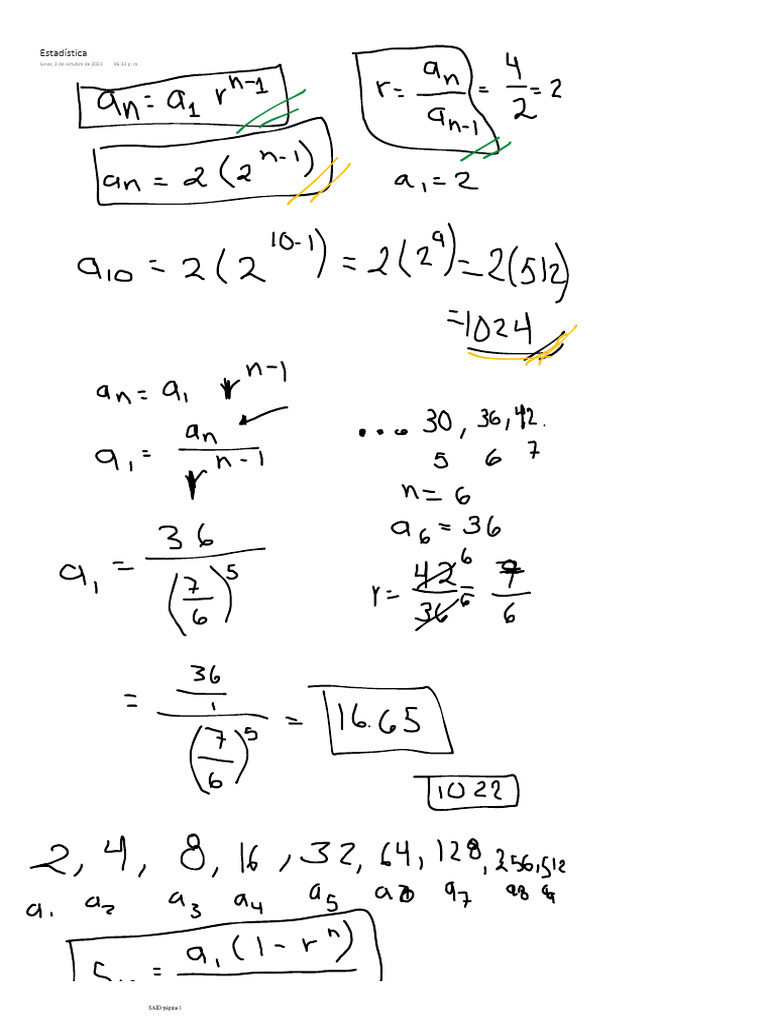 Estadística
lunes, 2 de octubre de 2023 06:33 p. m.
aₙ = a₁ rⁿ⁻¹
r = aₙ / aₙ₋₁ = 4/2 = 2
aₙ = 2 (2ⁿ⁻¹)
a₁ = 2
a₁₀ = 2 (2¹⁰⁻¹) = 2 (2⁹) = 2 (512)
= 1024
aₙ = a₁ rⁿ⁻¹
a₁ = aₙ / rⁿ⁻¹
... 30, 36, 42.
5 6 7
n = 6
a₆ = 36
a₁ = 36 / (7/6)⁵
r = 42/36 6/6 = 7/6
= 36/1 / (7/6)⁵ = 16.65
1022
2, 4, 8, 16, 32, 64, 128, 256, 512
a₁ a₂ a₃ a₄ a₅ a₆ a₇ a₈ a₉
S = a₁ (1 - rⁿ)
SAID página 1